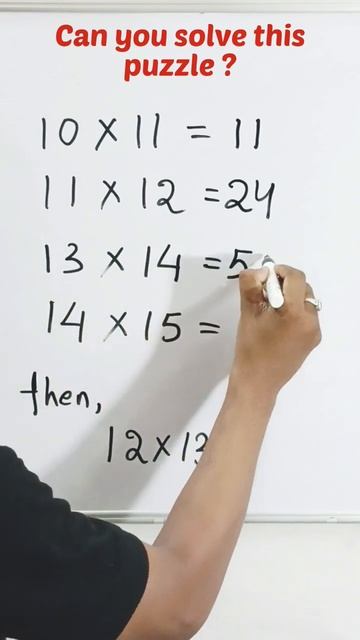 Can you solve this
puzzle ?
10 × 11 = 11
11 × 12 = 24
13 × 14 = 5
14 × 15 =
then,
12 × 13